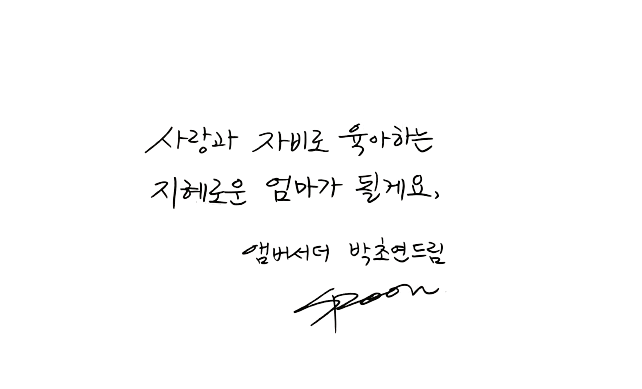 사랑과 자비로 육아하는
지혜로운 엄마가 될게요,
앰버서더 박초연드림
spoon